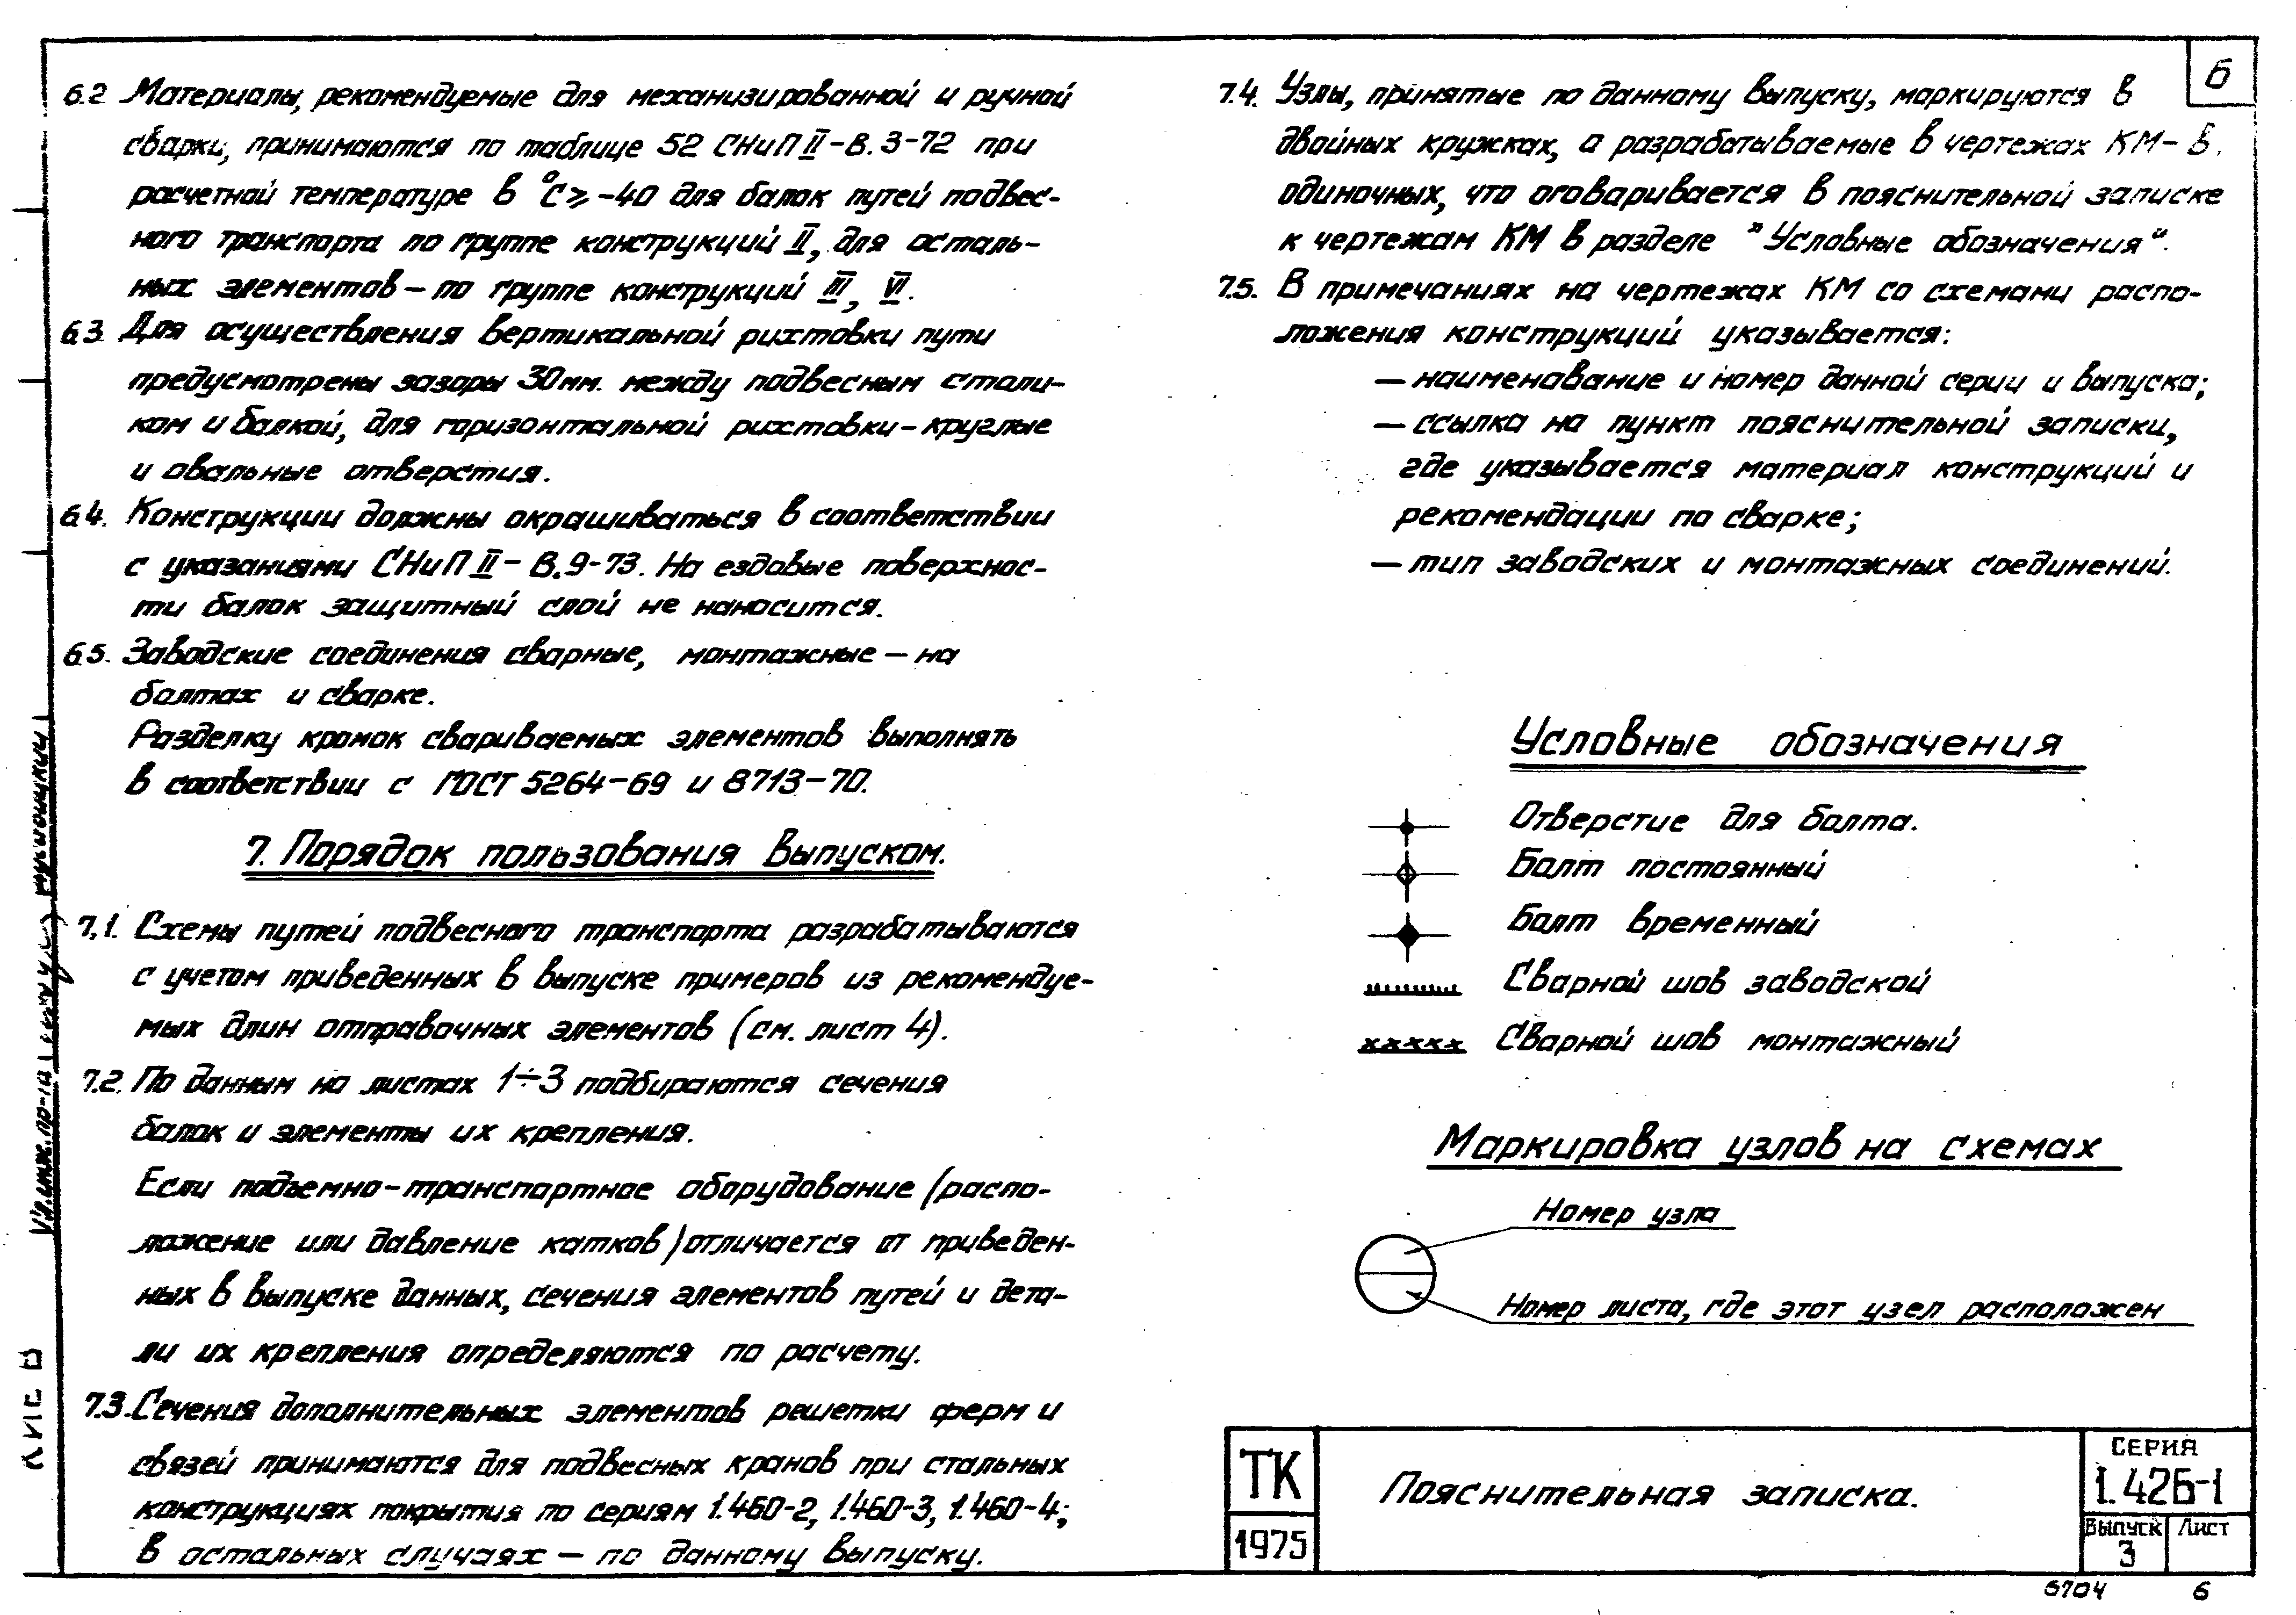 6.2. Материалы, рекомендуемые для механизированной и ручной
сварки, принимаются по таблице 52 СНиП II-В.3-72 при
расчетной температуре в °С ≥ -40 для балок путей подвес-
ного транспорта по группе конструкций II, для осталь-
ных элементов – по группе конструкций III, VI.
6.3. Для осуществления вертикальной рихтовки пути
предусмотрены зазоры 30мм. между подвесным столи-
ком и балкой, для горизонтальной рихтовки – круглые
и овальные отверстия.
6.4. Конструкции должны окрашиваться в соответствии
с указаниями СНиП II – В.9-73. На ездовые поверхнос-
ти балок защитный слой не наносится.
6.5. Заводские соединения сварные, монтажные – на
болтах и сварке.
Разделку кромок свариваемых элементов выполнять
в соответствии с ГОСТ 5264-69 и 8713-70.
7. Порядок пользования выпуском.
7.1. Схемы путей подвесного транспорта разрабатываются
с учетом приведенных в выпуске примеров из рекомендуе-
мых длин отправочных элементов (см. лист 4).
7.2. По данным на листах 1÷3 подбираются сечения
балок и элементы их крепления.
Если подъемно-транспортное оборудование (распо-
ложение или давление катков) отличается от приведен-
ных в выпуске данных, сечения элементов путей и дета-
ли их крепления определяются по расчету.
7.3. Сечения дополнительных элементов решетки ферм и
связей принимаются для подвесных кранов при стальных
конструкциях покрытия по сериям 1.460-2, 1.460-3, 1.460-4;
в остальных случаях – по данному выпуску.
6
7.4. Узлы, принятые по данному выпуску, маркируются в
двойных кружках, а разрабатываемые в чертежах КМ – в
одиночных, что оговаривается в пояснительной записке
к чертежам КМ в разделе "Условные обозначения".
7.5. В примечаниях на чертежах КМ со схемами распо-
ложения конструкций указывается:
– наименование и номер данной серии и выпуска;
– ссылка на пункт пояснительной записки,
где указывается материал конструкций и
рекомендации по сварке;
– тип заводских и монтажных соединений.
Условные обозначения
Отверстие для болта.
Болт постоянный
Болт временный
Сварной шов заводской
Сварной шов монтажный
Маркировка узлов на схемах
Номер узла
Номер листа, где этот узел расположен
ТК
1975
Пояснительная записка.
СЕРИЯ
1.426-1
Выпуск
3
Лист
6704
6
КИЕВ